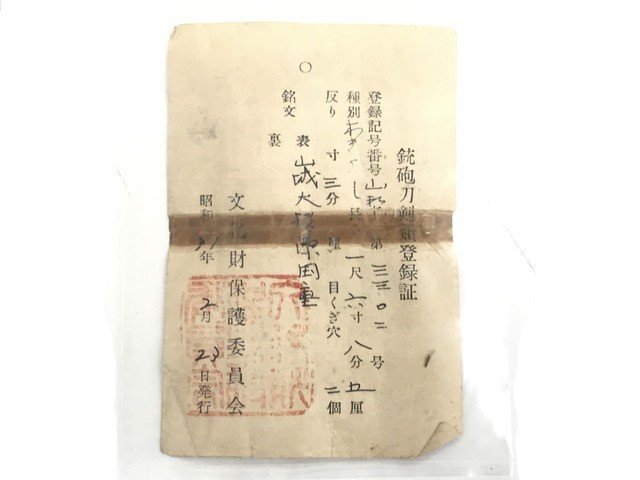 銃砲刀剣類登録証
登録記号番号 山形 第三三〇二号
種別 わきざし 長 一尺六寸八分五厘
反り 寸三分 厘 目くぎ穴 二個
銘文 表 山城大掾源国重
裏
文化財保護委員会
昭和31年2月23日発行